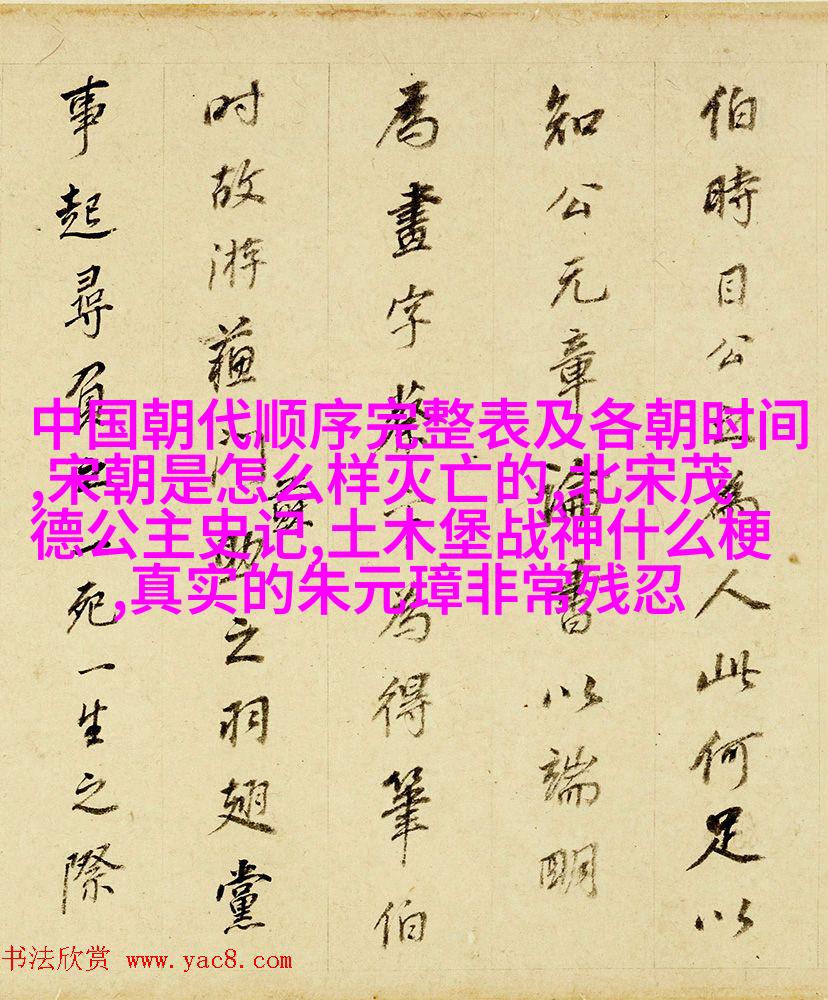 伯時目公為人此何足以
知公元章論書以端明
為畫字蔡為得筆伯
时故游蘓門之羽翅黨
事起尋負一死一生之際
中国朝代顺序完整表及各朝时间
,宋朝是怎么样灭亡的,北宋茂
德公主史记,土木堡战神什么梗
,真实的朱元璋非常残忍
书法欣赏 www.yac8.com